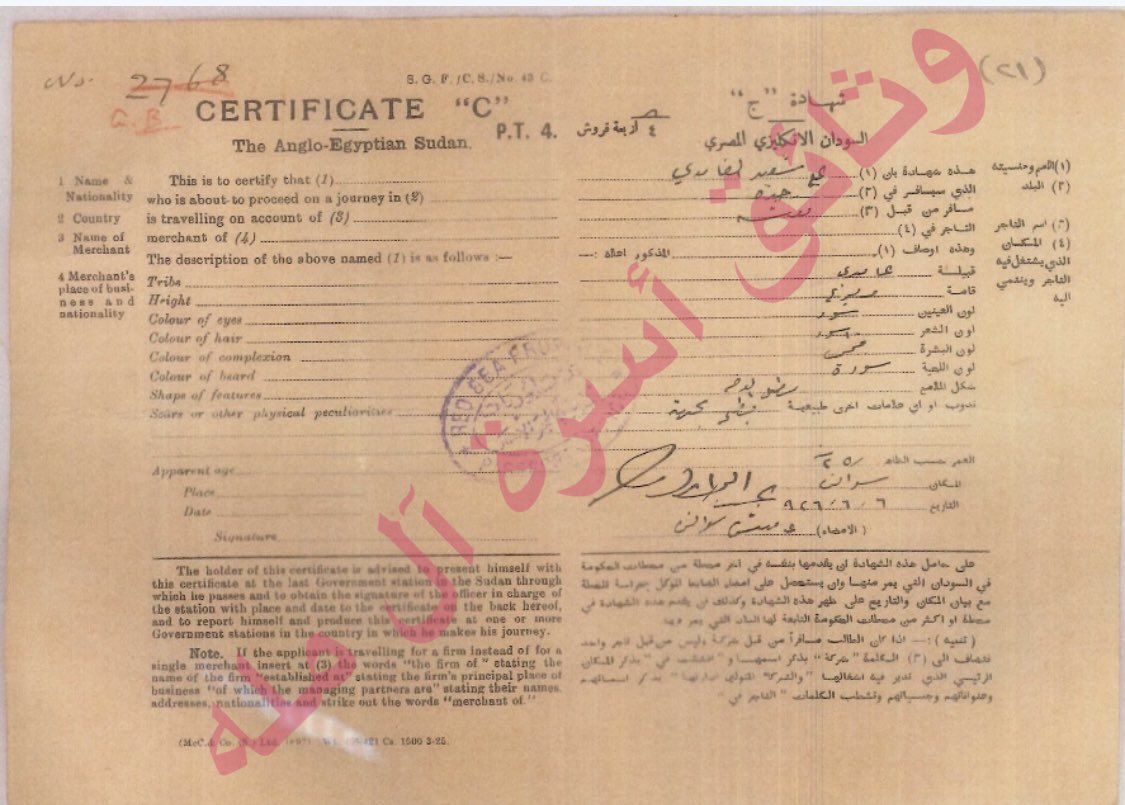 No. 2768
G.B
S. G. F. /C. S./No. 43 C.
(٢١)
CERTIFICATE "C"
P.T. 4.
The Anglo-Egyptian Sudan.
1 Name & Nationality
2 Country
3 Name of Merchant
4 Merchant's place of business and nationality
This is to certify that (1)
who is about to proceed on a journey in (2)
is travelling on account of (3)
merchant of (4)
The description of the above named (1) is as follows :—
Tribe
Height
Colour of eyes
Colour of hair
Colour of complexion
Colour of beard
Shape of features
Scars or other physical peculiarities
Apparent age
Place
Date
Signature
The holder of this certificate is advised to present himself with
this certificate at the last Government station in the Sudan through
which he passes and to obtain the signature of the officer in charge of
the station with place and date to the certificate on the back hereof,
and to report himself and produce this certificate at one or more
Government stations in the country in which he makes his journey.
Note. If the applicant is travelling for a firm instead of for a
single merchant insert at (3) the words "the firm of" stating the
name of the firm "established at" stating the firm's principal place of
business "of which the managing partners are" stating their names,
addresses, nationalities and strike out the words "merchant of."
شهادة "ج"
٤ أربعة قروش
السودان الانكليزي المصري
(١) الاسم وجنسيته
(٢) البلد
(٣) اسم التاجر
(٤) المكان
الذي يشتغل فيه
التاجر وينتمي
اليه
هذه شهادة بان (١) علي سعيد الغامدي
الذي سيسافر في (٢) جده
مسافر من قبل (٣)
التاجر في (٤)
وهذه اوصاف (١) المذكور اعلاه :—
قبيلة غامدي
قامة
لون العينين سود
لون الشعر اسود
لون البشرة
لون اللحية سودة
شكل الملامح
ندوب او اي علامات اخرى طبيعية
العمر حسب الظاهر ٢٥
المكان سواكن
التاريخ ٦ / ٦ / ٩٢٦
(الامضاء) مفتش سواكن
على حامل هذه الشهادة ان يقدمها بنفسه في آخر محطة من محطات الحكومة
في السودان التي يمر منها وان يستحصل على امضاء الضابط الموكل بحراسة المحطة
مع بيان المكان والتاريخ على ظهر هذه الشهادة وكذلك ان يقدم هذه الشهادة في
محطة او اكثر من محطات الحكومة التابعة لها البلد التي يمر فيها
(تنبيه) :— اذا كان الطالب مسافراً من قبل شركة وليس من قبل تاجر واحد
RED SEA
وثائق أسرة آل مله